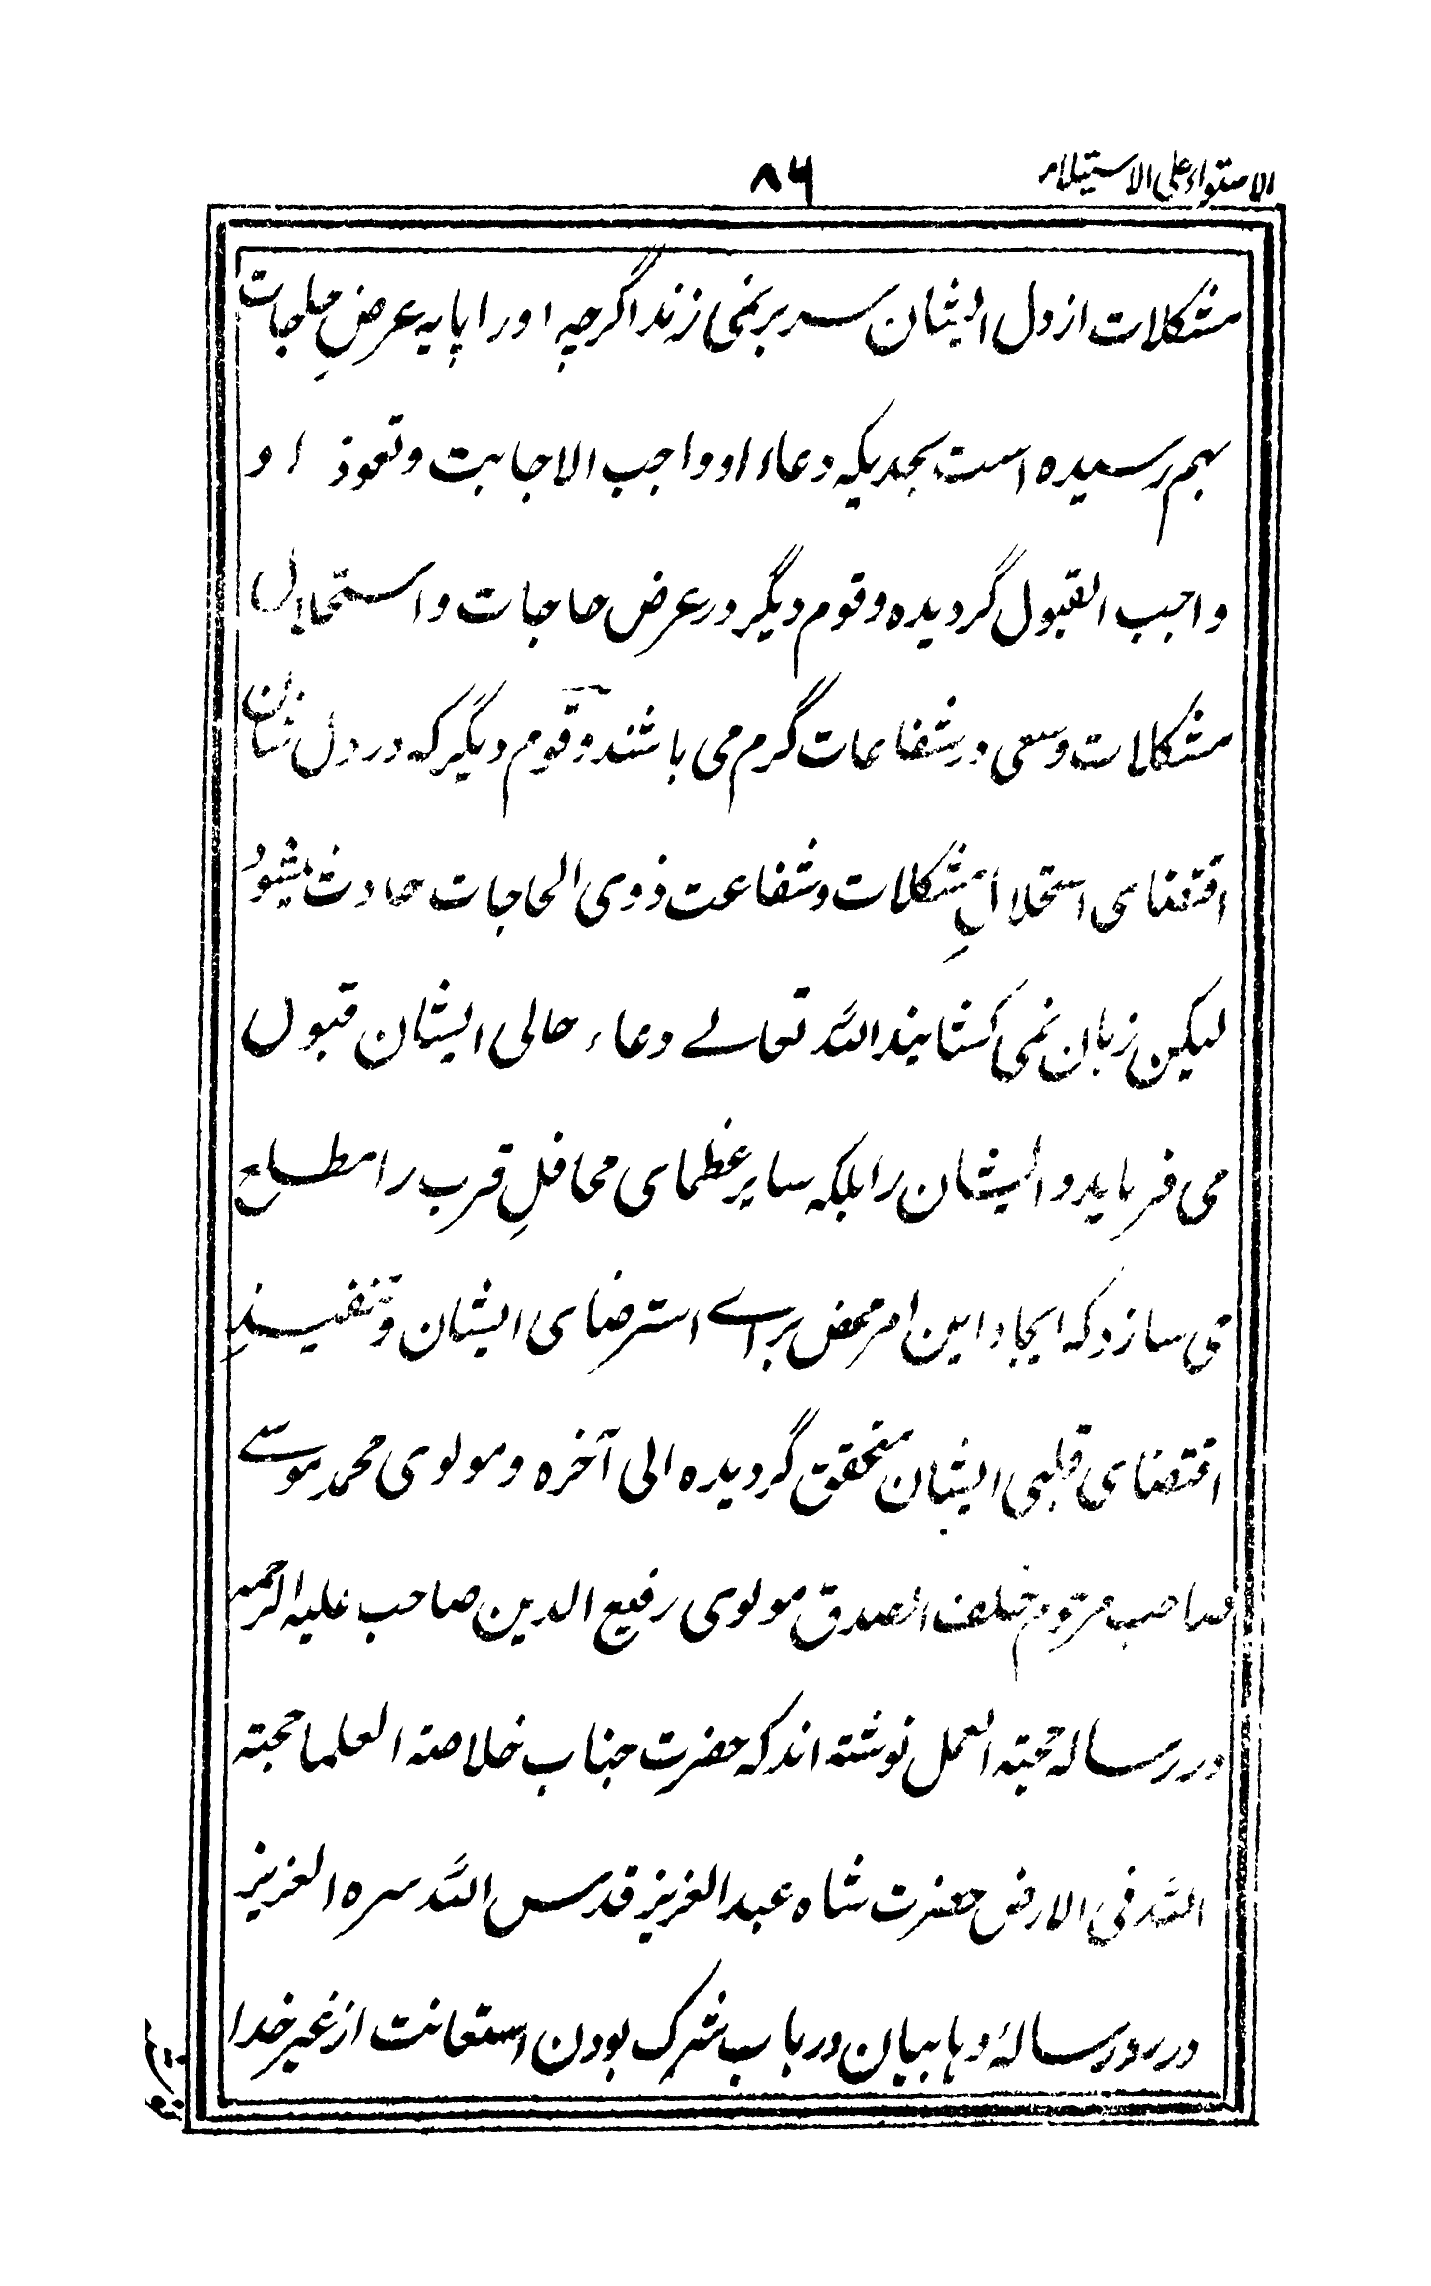 الاستواء علی الاستیلاء
۸۶
مشکلات از دل ایشان سر بر نمی زند اگرچه او را پایه عرضِ حاجات
بهم رسیده است بحدیکه دعاء او واجب الاجابت و تعوذ او
واجب القبول گردیده و قوم دیگر در عرض حاجات و استحلال
مشکلات و سعی در شفاعات گرم می باشند و قوم دیگر که در دل شان
اقتضای استحلالِ مشکلات و شفاعت ذوی الحاجات حادث میشود
لیکن زبان نمی کشایند الله تعالے دعاء حالی ایشان قبول
می فرماید و ایشان را بلکه سایر عظمای محافلِ قرب را مطلع
می سازد که ایجاد این امر محض براے استرضای ایشان و تنفیذِ
اقتضای قلبی ایشان متحقق گردیده الی آخره و مولوی محمد موسے
صاحب مرحوم خلف الصدق مولوی رفیع الدین صاحب علیه الرحمه
در رساله حجته العمل نوشته اند که حضرت جناب خلاصه العلما حجته
الله فی الارض حضرت شاه عبد العزیز قدس الله سره العزیز
در رد رسالۂ وهابیان در باب شرک بودن استعانت از غیر خدا